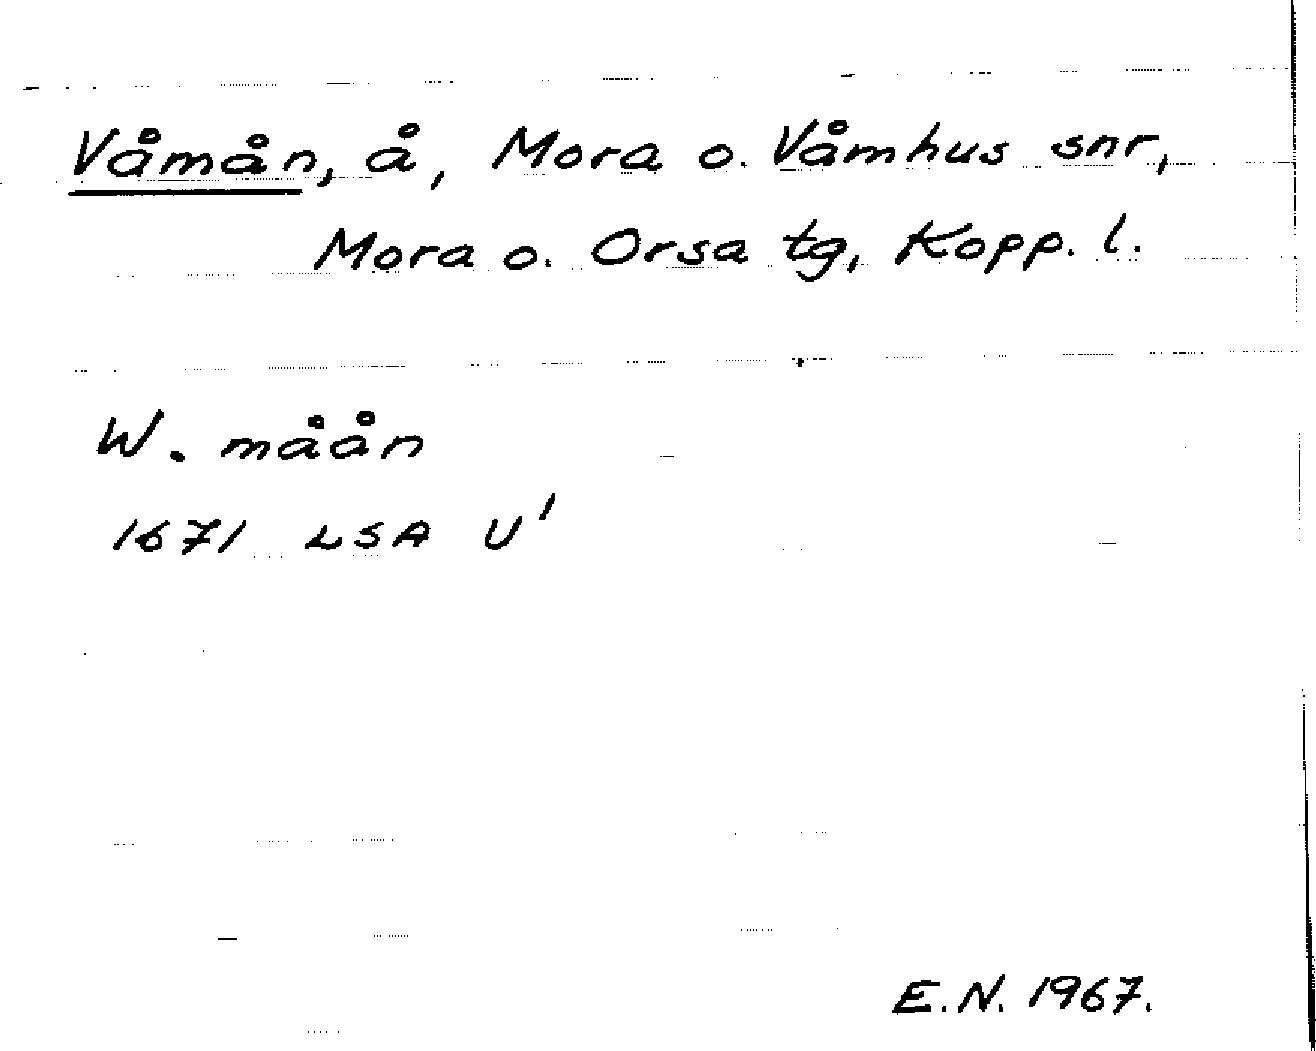 Våmån, å, Mora o. Våmhus snr,
Mora o. Orsa tg, Kopp. l.
W. måån
1671 LSA U'
E.N. 1967.